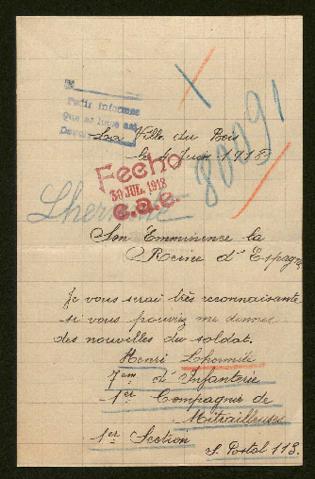 Pedir informes
que se haga así
La Ville du Bois
le 4 Juin 1918
Fecho
30 JUL. 1918
c.a.e.
80091
Lhermite
Son Emminence la
Reine d'Espagne
Je vous serai très reconnaissante
si vous pouviez me donner
des nouvelles du soldat.
Henri Lhermite
7em d'Infanterie
1er Compagnie de
Mitrailleuses
1er Section
S. Postal 113.